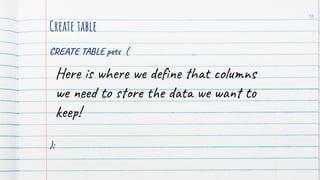 Create table
CREATE TABLE pets (
Here is where we define that columns
we need to store the data we want to
keep!
);